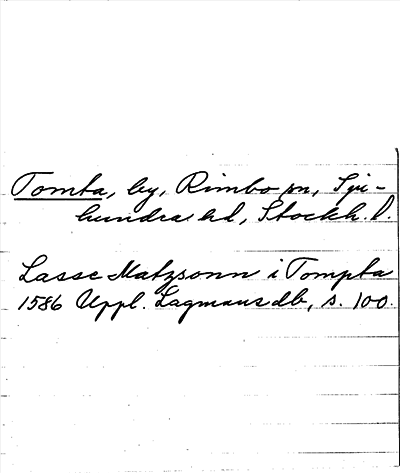 Tomta, by, Rimbo sn, Sju-
hundra hd, Stockh. l.
Lasse Matzsonn i Tompta
1586 Uppl. Lagmansdb, s. 100.